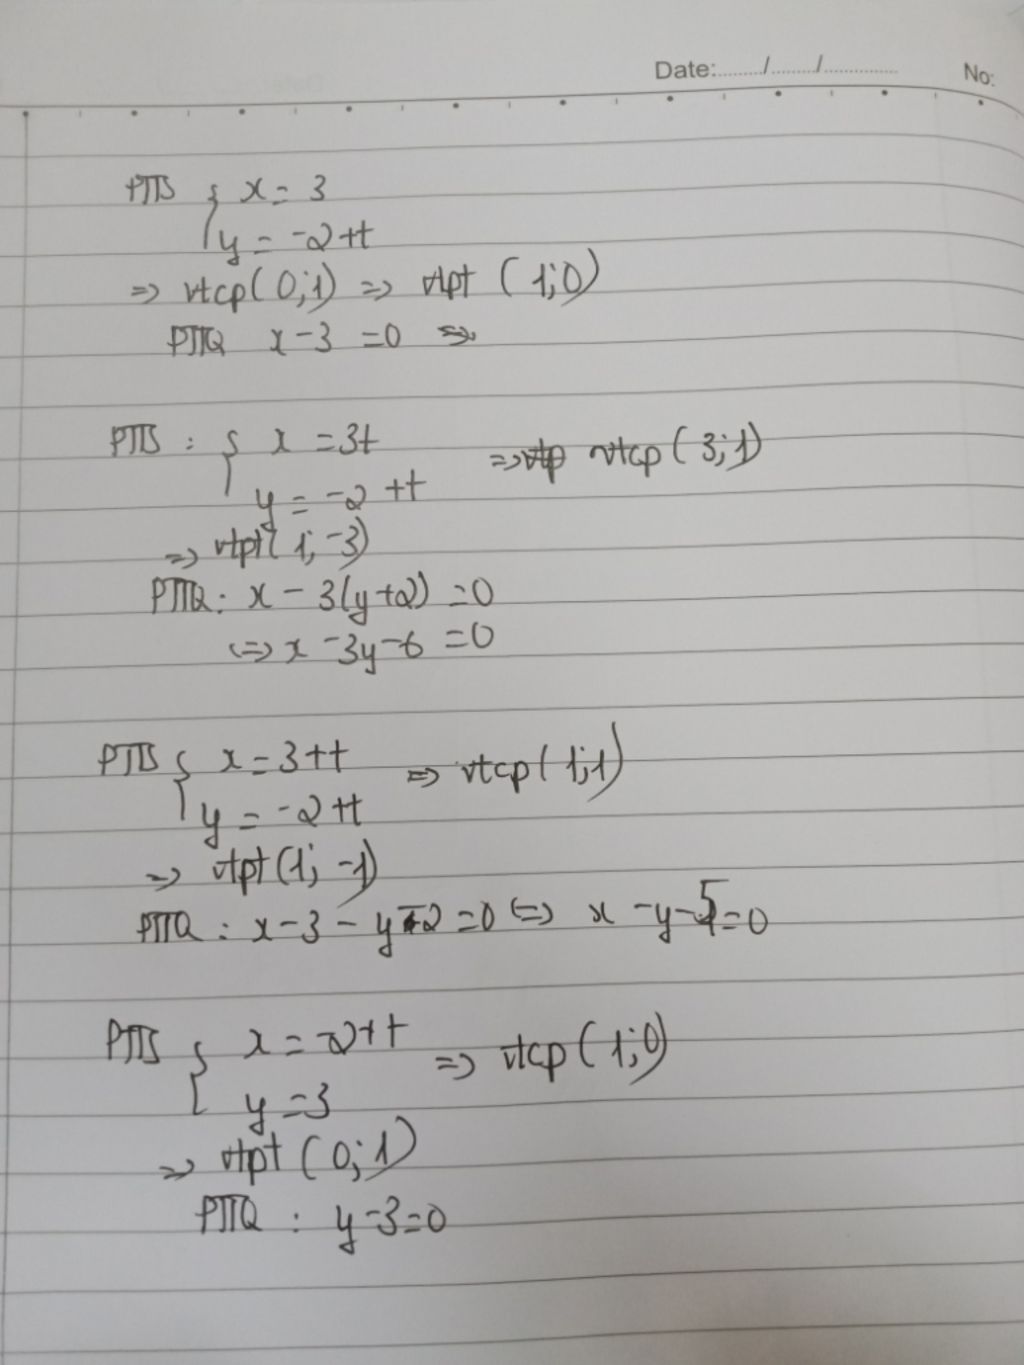 Date:......./......./............. No:
PTTS { x = 3
y = -2+t
=> vtcp(0;1) => vtpt (1;0)
PTTQ x-3 =0 =>
PTTS : { x =3t => vtcp(3;1)
y = -2 +t
=> vtpt(1; -3)
PTTQ: x - 3(y+2) =0
<=> x -3y-6 =0
PTTS { x = 3+t => vtcp(1;1)
y = -2+t
=> vtpt(1; -1)
PTTQ : x-3 - y-2 =0 <=> x -y-5=0
PTTS { x = -2+t => vtcp(1;0)
y =3
=> vtpt (0;1)
PTTQ : y-3=0